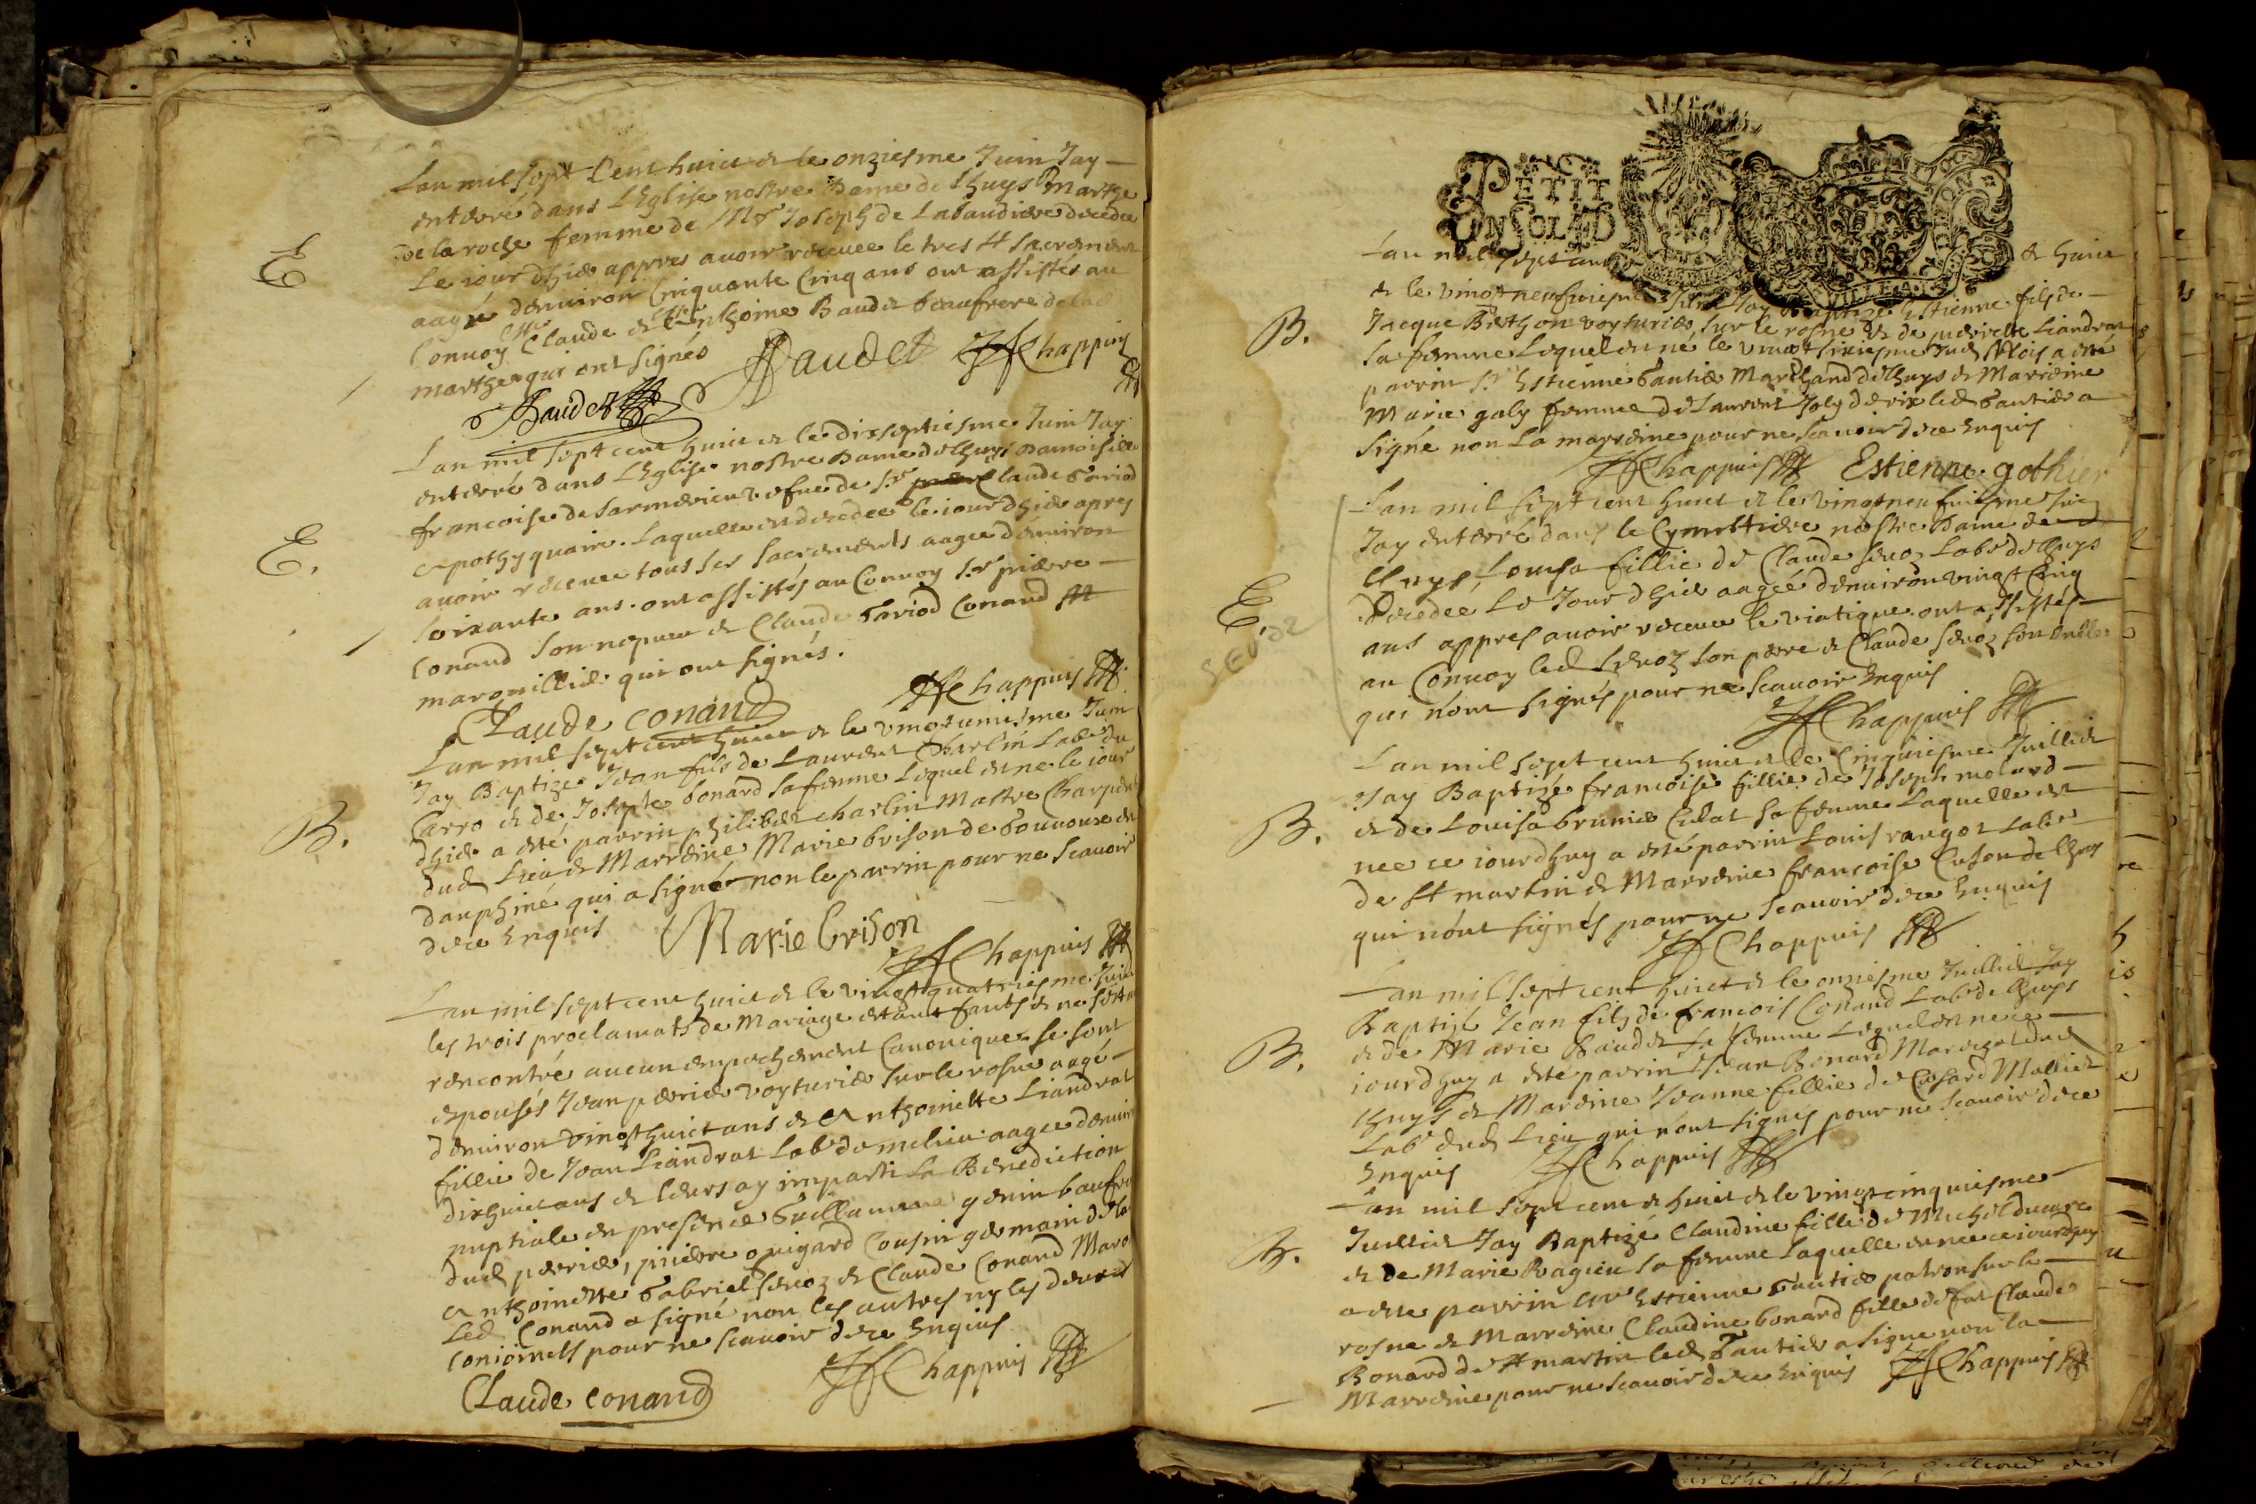 Lan mil sept Cent huict & le onziesme Juin Jay
enterré dans LEglise nostre Dame de Lhuys Marthe
de la roche femme de Mr Joseph de Labaudiere decedee
E
Le jour dhier appres avoir receuee le tres St sacrement
aagée denviron Cinquante Cinq ans ont assistés au
Convoy Claude & Anthoine Baudet beaufrere de lad
marthe qui ont signés
Baudet Chappuis
Baudet
Lan mil sept cent huict & le dixseptiesme Juin Jay
enterré dans LEglise nostre Dame de Lhuys Damoiselle
francoise de Sarmerieux vefue de Sr Claude Goriod
E.
apothyquaire. Laquelle est decedee le jour dhier apres
avoir receuee tous ses sacrements aagee denviron
soixante ans. ont assistés au Convoy Sr pierre
Conand son nepveu & Claude Conand
marguillier qui ont signés.
Claude conand Chappuis
Lan mil sept cent huict & le vingtuniesme Juin
Jay Baptizé Jean fils de Laurent Charlin Labr du
Carro & de Josephte bonard sa femme Lequel est ne le jour
B.
dhier a esté parrin philibert charlin Mastre Charpent
dud Lieu & Marreine Marie brison de en
dauphiné qui a signée non le parrin pour ne scavoir
de ce Enquis Marie brison
Chappuis
Lan mil sept cent huict & le vingtquatriesme Juin
les trois proclamats de Mariage estant faits & ne sest
rencontré aucun empechement Canonique se sont
epousés Jean perrier voyturier sur le rosne aagé
denviron vingt huict ans & Anthoinette Liandrat
fillie de Jean Liandrat Labr de melieu aagee denvir
dixhuict ans & Leurs ay imparti La Benediction
nuptiale en presence Guillaume genin beaufre
dud perrier, pierre guigard Cousin germain de la
Anthoinette Gabriel Sevoz & Claude Conand Marg
Led Conand a signé non les autres ny les deux
conjoincts pour ne scavoir de ce Enquis
Claude conand Chappuis
PETIT
EN SOLS D
Lan mil sept cent & huict
& le vingtneufviesme Juin Jay Baptizé Estienne fils de
B.
Jacque Berthon voyturier sur le rosne & de pierrette Liandrat
sa femme Lequel est né le vingtsixiesme dud Mois a esté
parrin Sr Estienne Gautier Marchand de Lhuys & Marreine
Marie galy femme de Laurent Joly de rix led Gautier a
signé non La marreine pour ne scavoir de ce Enquis
Chappuis Estienne gothier
Lan mil sept cent huict & le vingtneufviesme Juin
Jay enterré dans le Cymetiere nostre Dame de
Lhuys, Louisa fillie de Claude Sevoz Labr de Lhuys
E.
SEVOZ
Decedeé Le Jour dhier aagée denviron vingt Cinq
ans appres avoir receuee le viatique ont assistés
au Convoy led Sevoz son pere & Claude Sevoz son oncle
qui n'ont signés pour ne scavoir Enquis
Chappuis
Lan mil sept cent huict & le Cinquiesme Juillet
Jay Baptizé francoise fillie de Joseph molard
B.
& de Louisa brunier Culat sa femme Laquelle est
nee ce jourdhuy a esté parrin Louis rangot Labr
de St martin & Marreine francoise Cuson de Lhuys
qui n'ont signés pour ne scavoir de ce Enquis
Chappuis
Lan mil sept cent huict & le onziesme Juillet Jay
Baptizé Jean fils de francois Conand Labr de Lhuys
B.
& de Marie Baudet sa femme Lequel est ne ce
jourdhuy a esté parrin Jean Bonard Mareschal dud
Lhuys & Mareine Jeanne fillie de Cesard Mollier
Labr dud Lieu qui n'ont signés pour ne scavoir de ce
Enquis Chappuis
Lan mil sept cent & huict & le vingtcinquiesme
B.
Juillet Jay Baptizé Claudine fille de Michel ducarre
& de Marie Ragieu sa femme Laquelle est nee ce jourdhuy
a este parrin Sr Estienne Gautier patron sur le
rosne & Marreine Claudine bonard fille de fut Claude
Bonard de St martin led Gautier a signe non la
Marreine pour ne scavoir de ce Enquis Chappuis